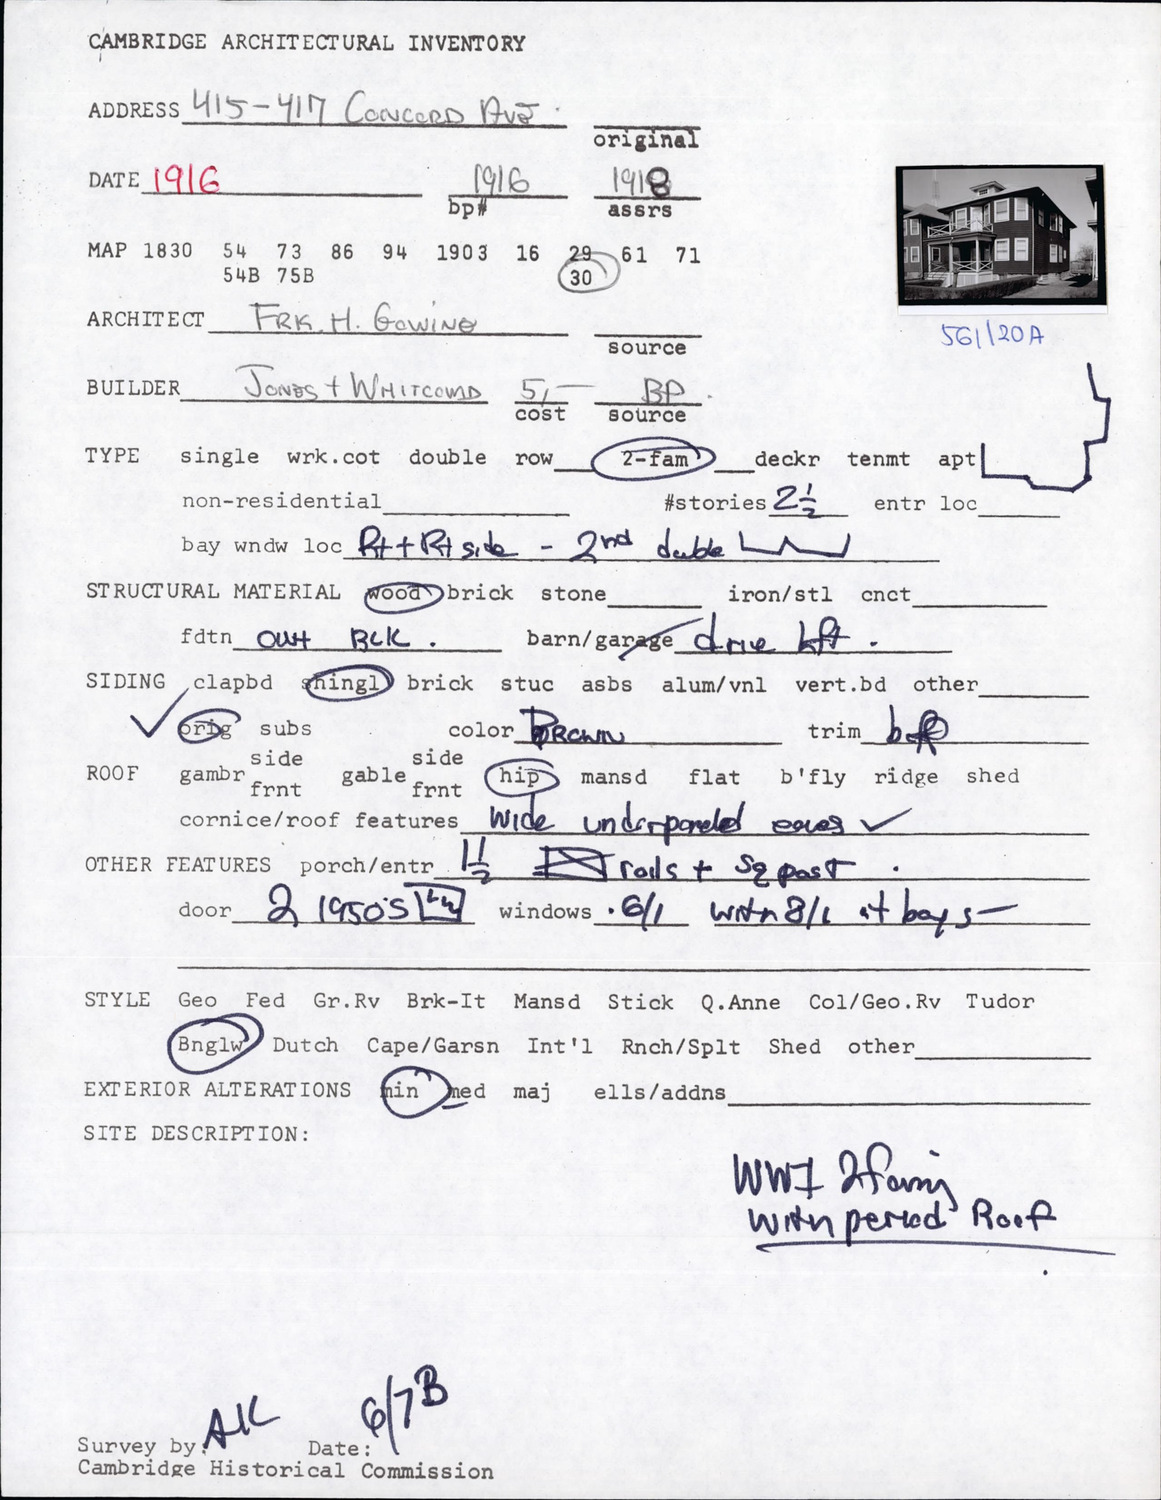 CAMBRIDGE ARCHITECTURAL INVENTORY
ADDRESS 415-417 CONCORD AVE.
original
DATE 1916 1916 1918
bp# assrs
MAP 1830 54 73 86 94 1903 16 29 61 71
54B 75B 30
561/20A
ARCHITECT FRK. H. GOWING
source
BUILDER JONES + WHITCOMB 5,- BP.
cost source
TYPE single wrk.cot double row 2-fam deckr tenmt apt
non-residential #stories 2½ entr loc
bay wndw loc Rt + Rt side - 2nd double
STRUCTURAL MATERIAL wood brick stone iron/stl cnct
fdtn BLK. barn/garage drive left.
SIDING clapbd shingl brick stuc asbs alum/vnl vert.bd other
orig subs color BROWN trim
ROOF gambr side frnt gable side frnt hip mansd flat b'fly ridge shed
cornice/roof features Wide eaves
OTHER FEATURES porch/entr rails + sq post.
door 2 1950'S windows 6/1 with 8/1 at bays-
STYLE Geo Fed Gr.Rv Brk-It Mansd Stick Q.Anne Col/Geo.Rv Tudor
Bnglw Dutch Cape/Garsn Int'l Rnch/Splt Shed other
EXTERIOR ALTERATIONS min med maj ells/addns
SITE DESCRIPTION:
WWI 2 family
with period Roof
Survey by: AK Date: 6/7B
Cambridge Historical Commission